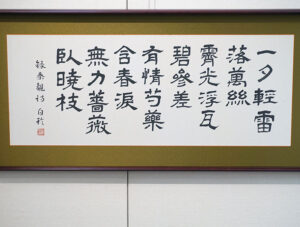 一夕輕雷
落萬絲
霽光浮瓦
碧參差
有情芍藥
含春淚
無力薔薇
臥曉枝
錄秦觀詩